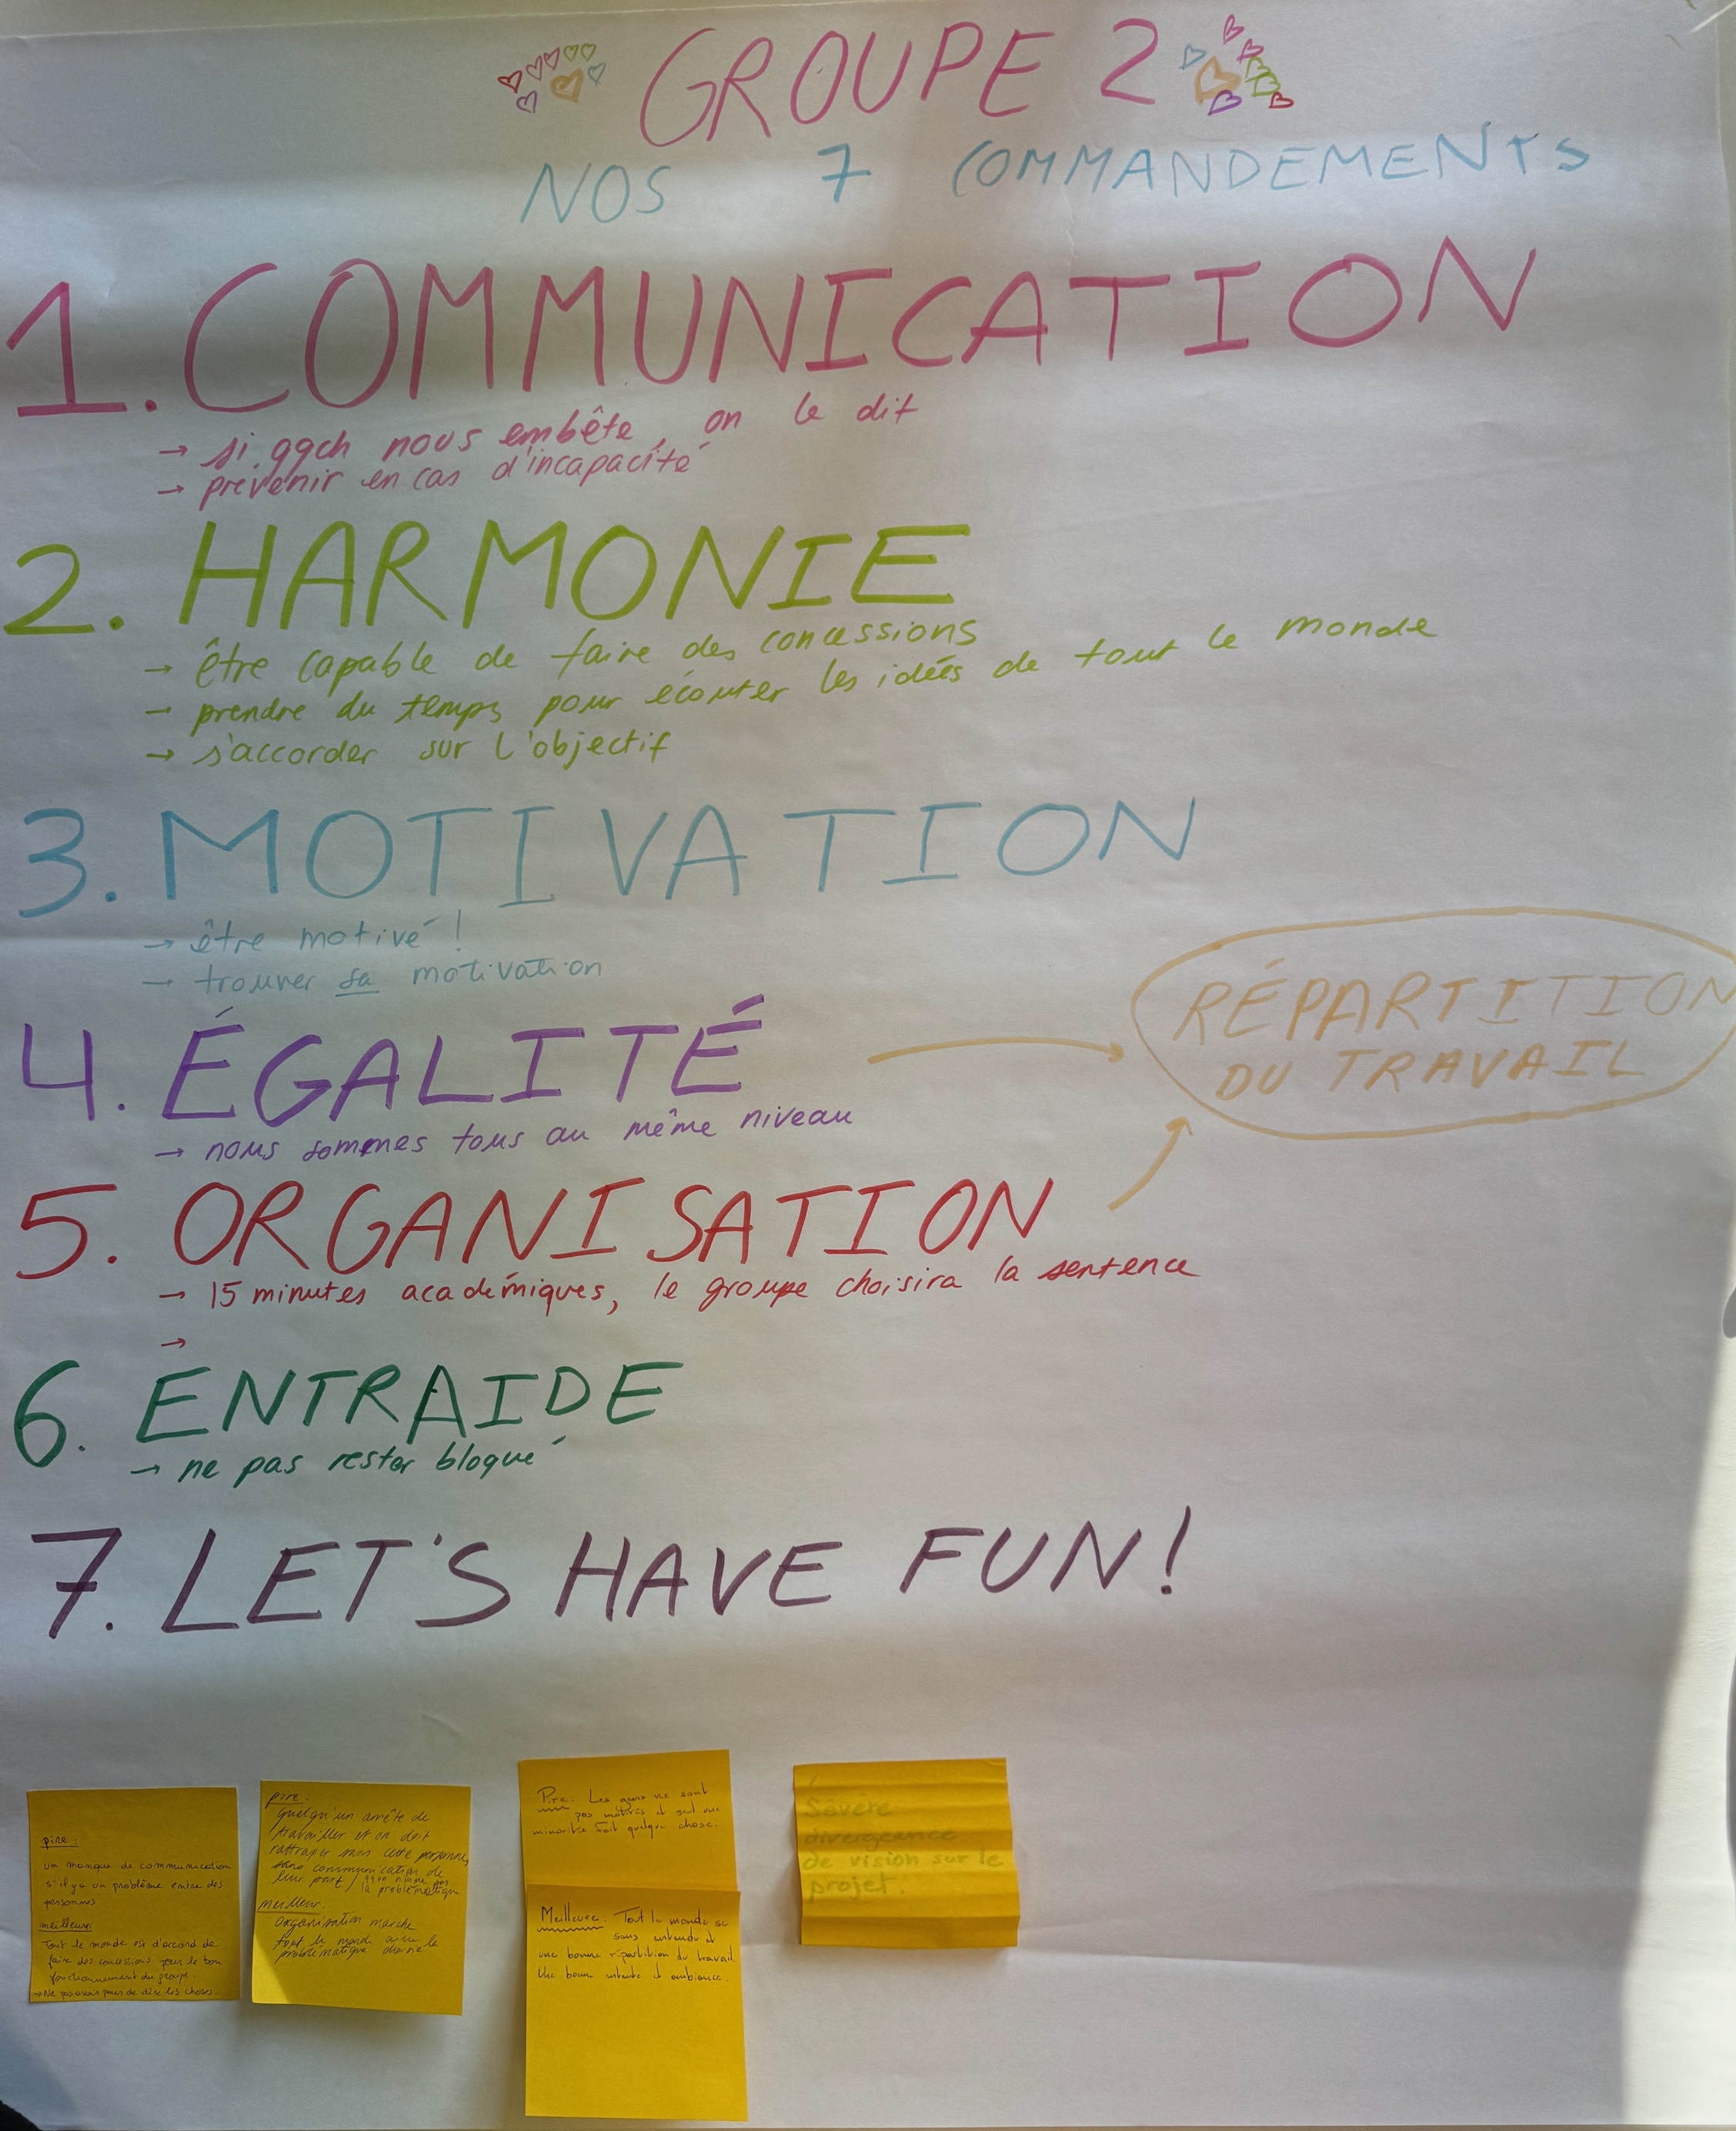 GROUPE 2
NOS 7 COMMANDEMENTS
1. COMMUNICATION
→ si qqch nous embête, on le dit
→ prévenir en cas d'incapacité
2. HARMONIE
→ être capable de faire des concessions
→ prendre du temps pour écouter les idées de tout le monde
→ s'accorder sur l'objectif
3. MOTIVATION
→ être motivé !
→ trouver sa motivation
4. ÉGALITÉ
→ nous sommes tous au même niveau
RÉPARTITION
DU TRAVAIL
5. ORGANISATION
→ 15 minutes académiques, le groupe choisira la sentence
→
6. ENTRAIDE
→ ne pas rester bloqué
7. LET'S HAVE FUN!
pire :
un manque de communication
s'il y a un problème entre des
personnes
meilleur:
Tout le monde est d'accord de
faire des concessions pour le bon
fonctionnement du groupe.
→ Ne pas avoir peur de dire les choses.
pire :
quelqu'un arrête de
travailler et on doit
rattraper sans cette personne,
sans communication de
leur part / qqun n'aime pas
la problématique
meilleur:
organisation marche
tout le monde aime la
problématique choisie
Pire : Les gens ne sont
pas motivés et seul une
minorité fait quelque chose.
Meilleure : Tout le monde se
sens entendu et
une bonne répartition du travail.
Une bonne entente et ambiance.
Sévère
divergeance
de vision sur le
projet.